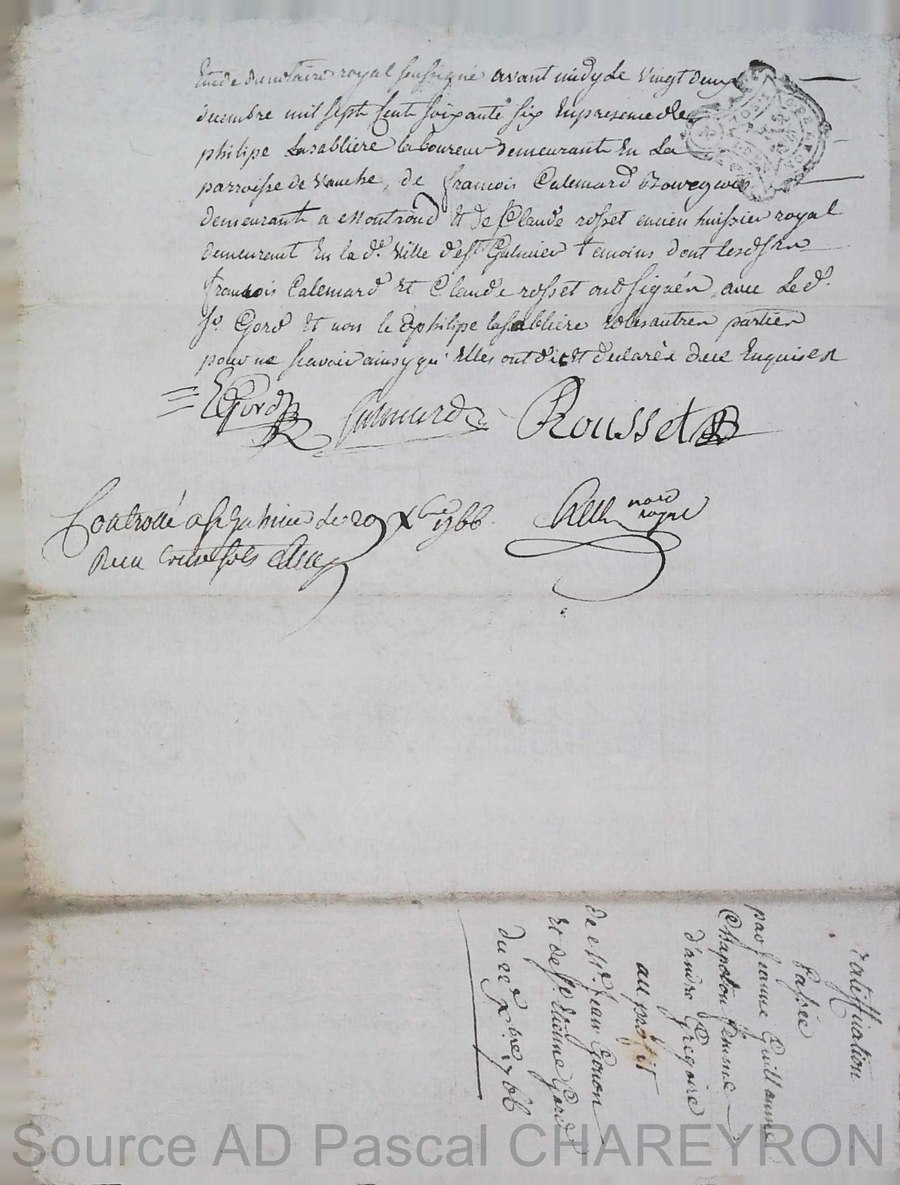 Etude du notaire royal soussigné avant midy Le Vingt deux
decembre mil sept Cent soixante six En presence de
philipe Lasabliere laboureur demeurant En La
parroisse de Vauche, de francois Calemard
demeurant a Montrond Et de Claude rosset ancien huissier royal
demeurant En la de. Ville de st. Galmier temoins dont lesd. srs
francois Calemard Et Claude rosset ont signés avec Led.
sr. Gord Et non led philipe lasabliere les autres parties
pour ne scavoir ainsy qu'Elles ont dit Et declarés de ce Enquises
Gord Calemard Rousset
Controlé a st Galmier le 29 Xbre 1766.
Recu treise sols
notr
royal
ratiffication
Passée
par Jeanne Guillaume
Chapolon femme
d'andré Gregoire
au proffit
de Mr. Jean Gonon
Et de sr Etienne Gord
du 22e Xbre 1766
Source AD Pascal CHAREYRON